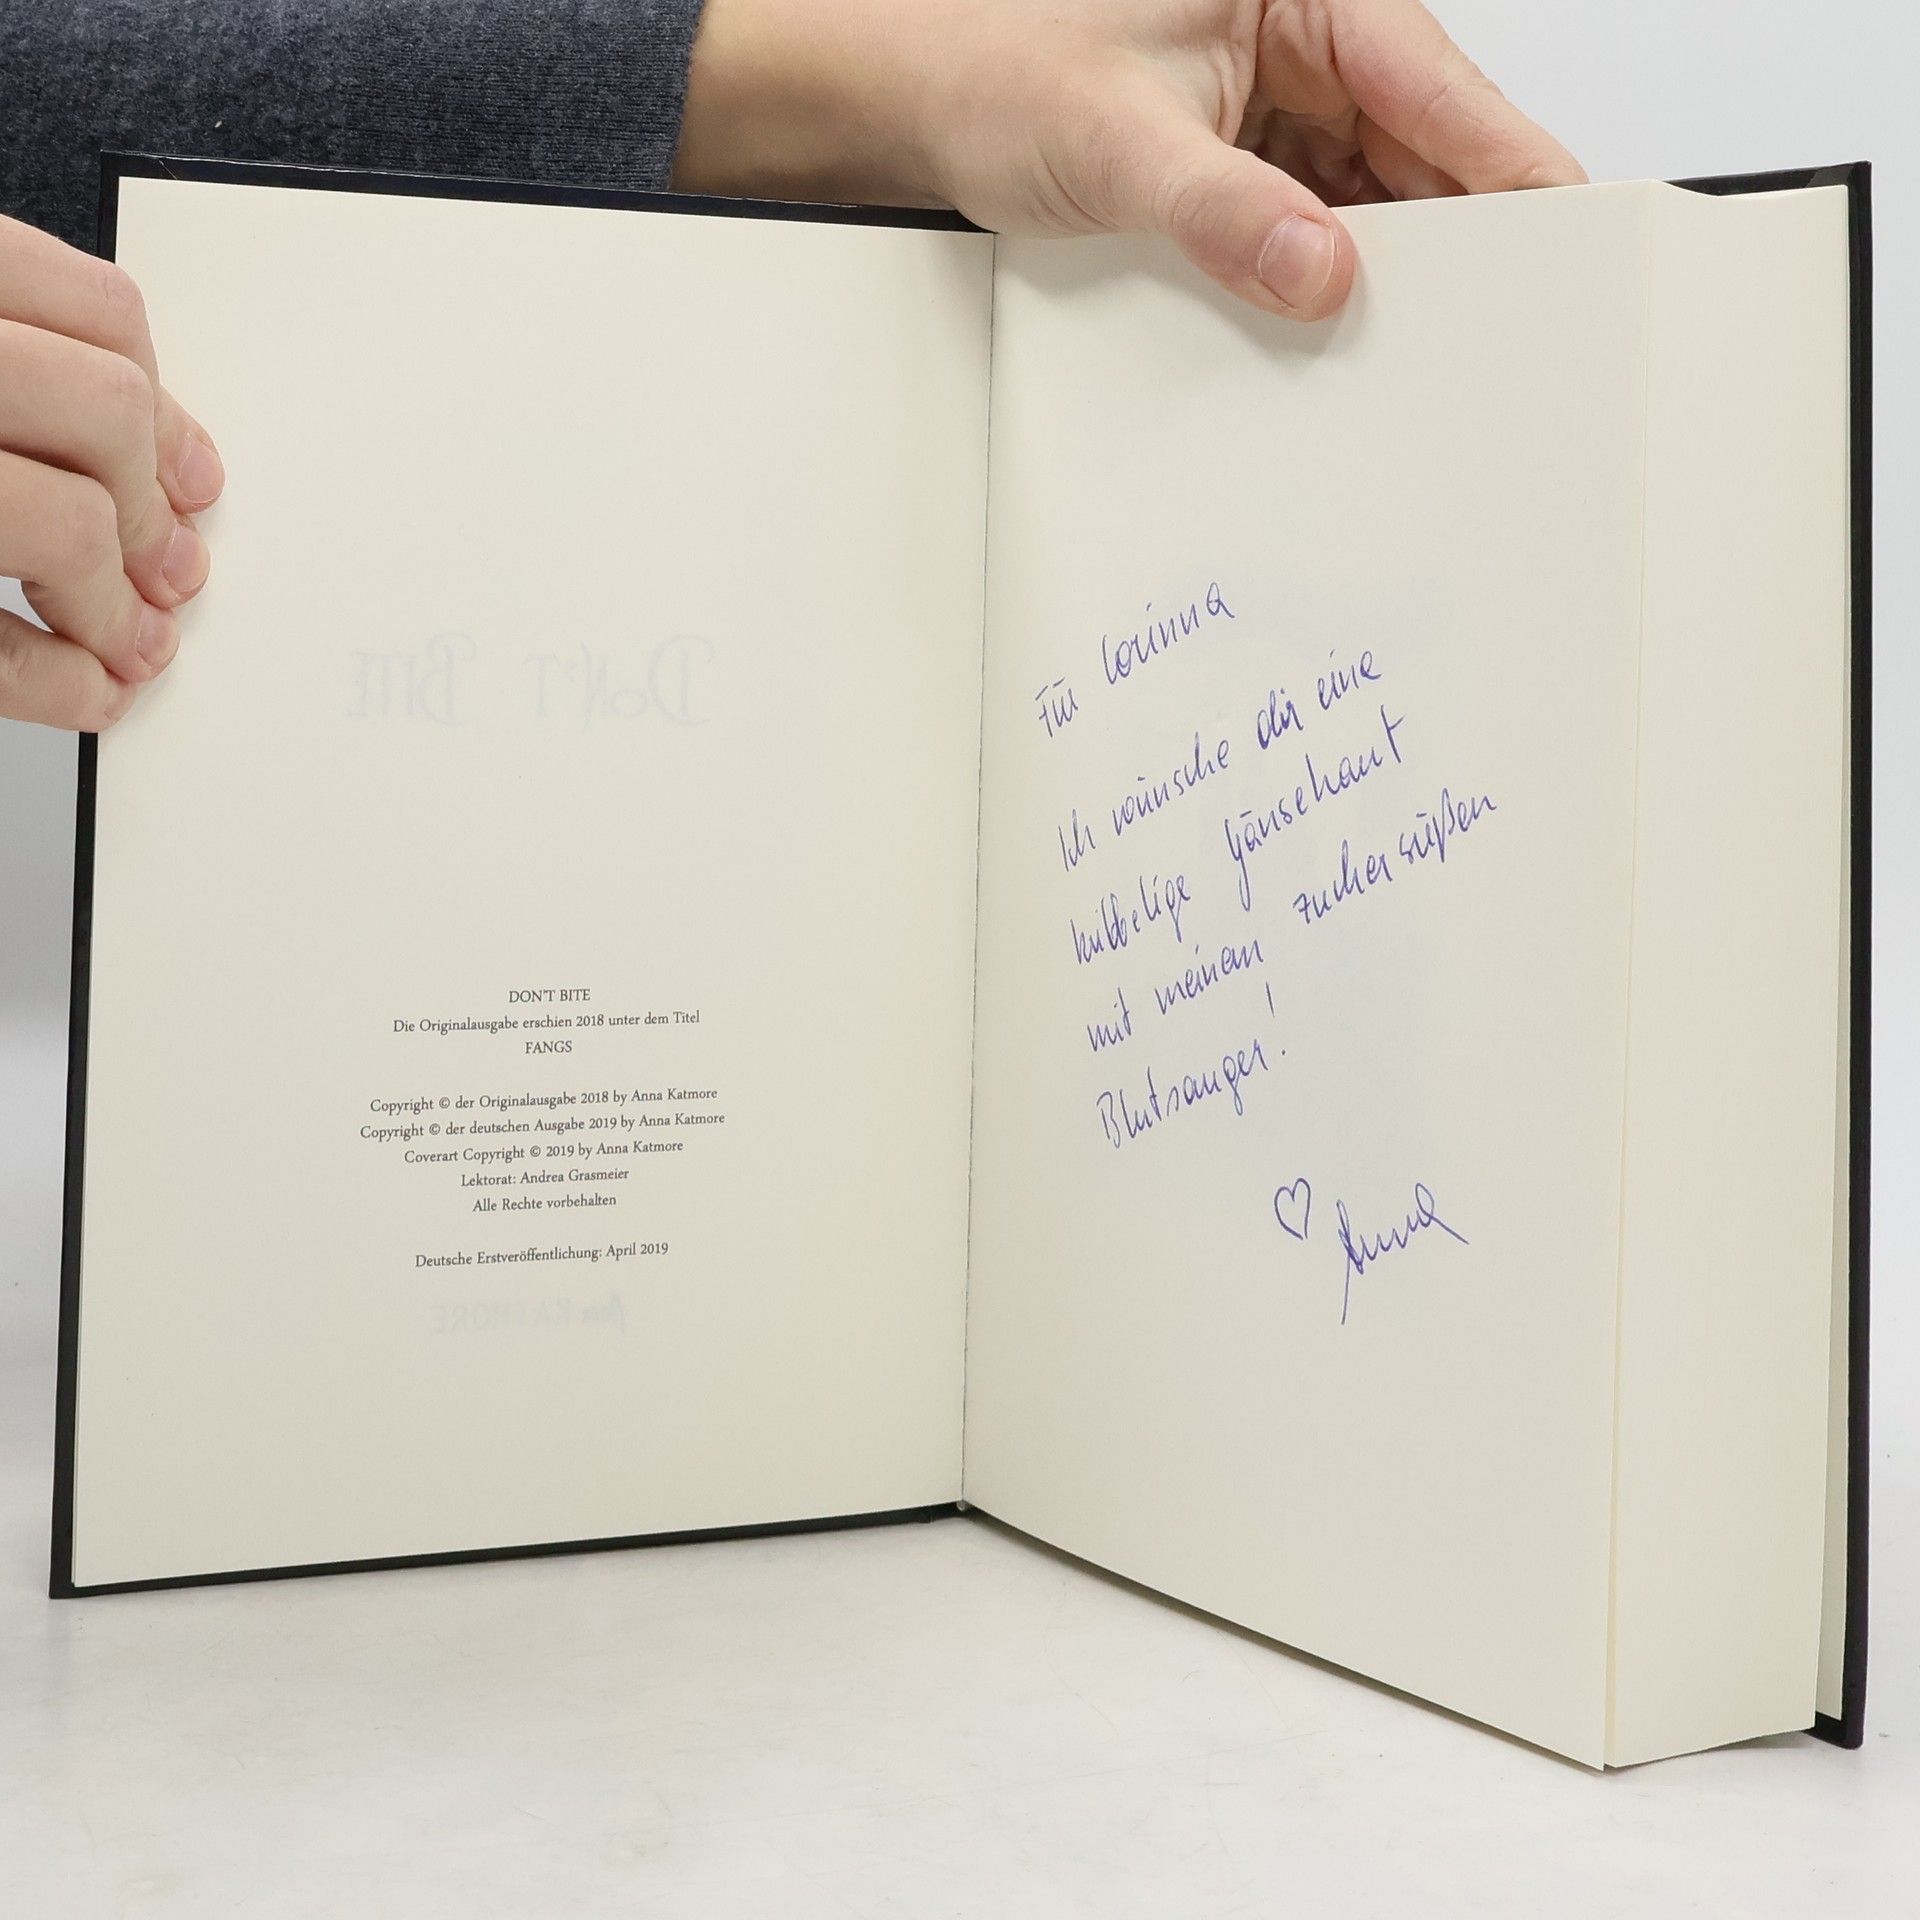 DON'T BITE
DON'T BITE
Die Originalausgabe erschien 2018 unter dem Titel
FANGS
Copyright © der Originalausgabe 2018 by Anna Katmore
Copyright © der deutschen Ausgabe 2019 by Anna Katmore
Coverart Copyright © 2019 by Anna Katmore
Lektorat: Andrea Grasmeier
Alle Rechte vorbehalten
Deutsche Erstveröffentlichung: April 2019
Anna KATMORE
Für Corinna
Ich wünsche dir eine
kribbelige Gänsehaut
mit meinem zuckersüßen
Blutsauger!
♡ Anna